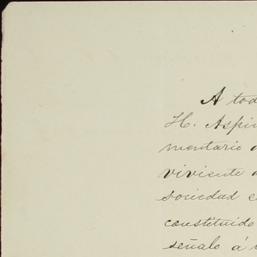 A tod
H. Aspi
mentario
viviente d
sociedad e
constituido
señalo á